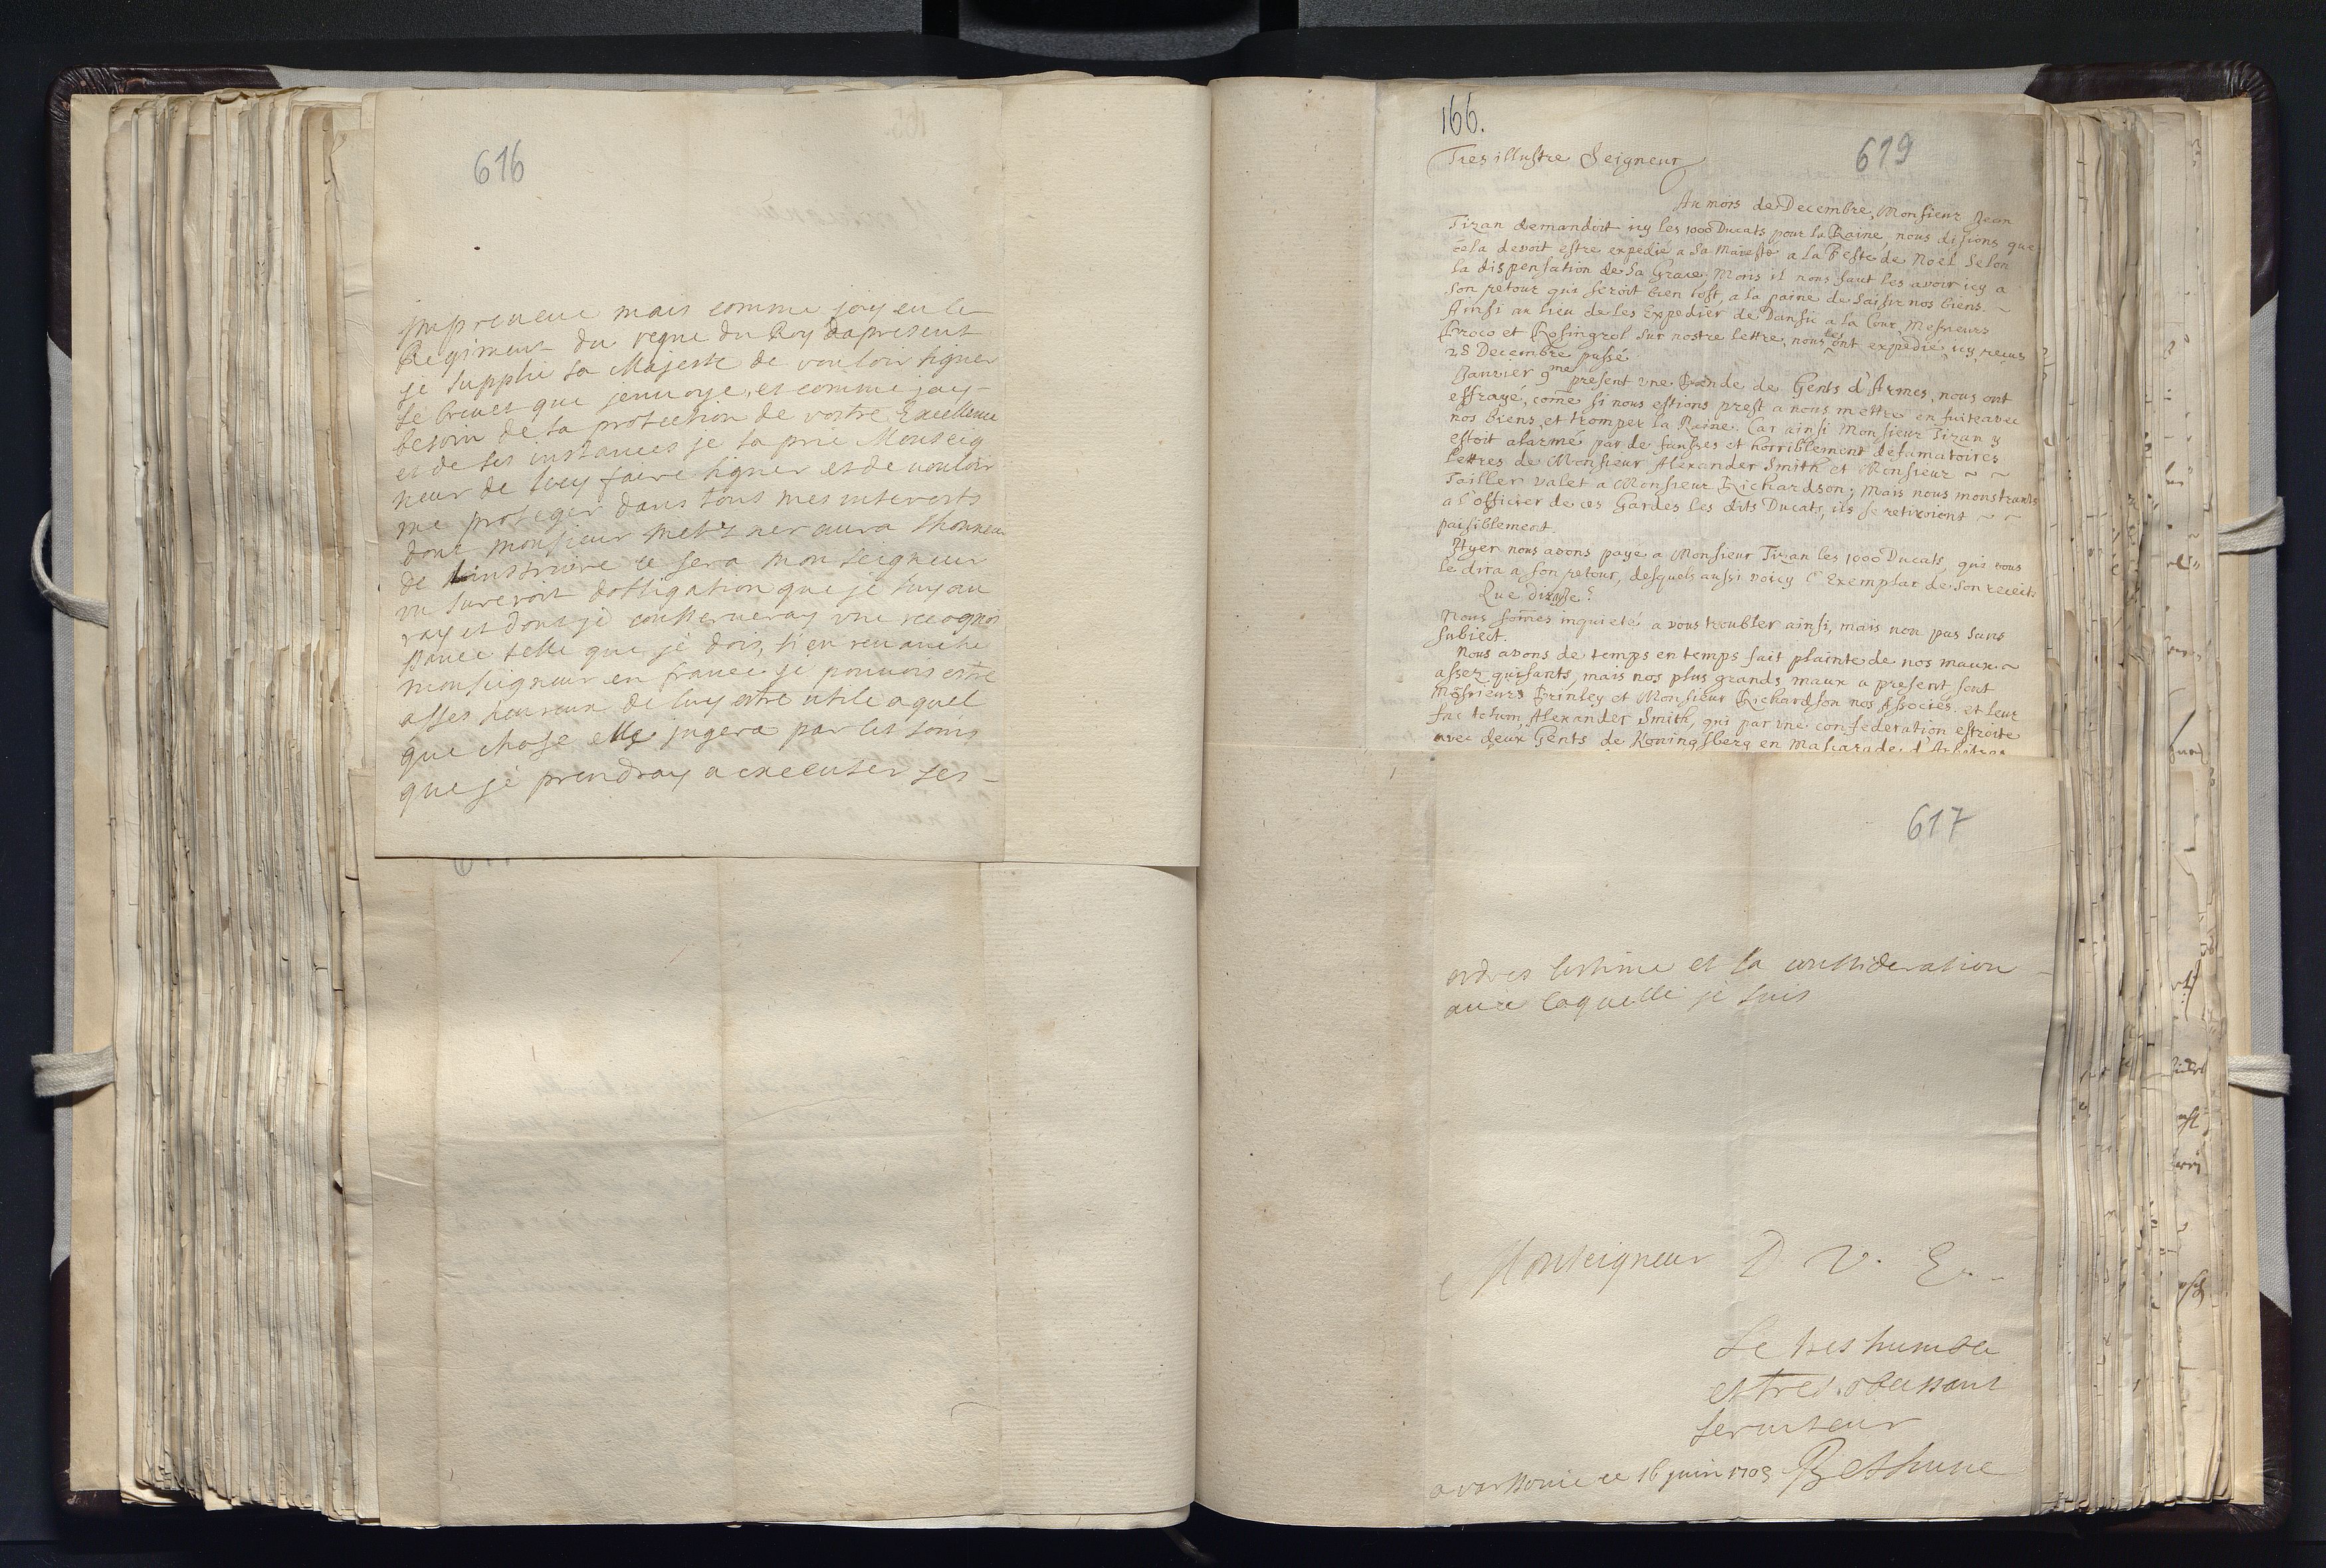 616
imprevue mais comme jay eu le
Regiment du regne du Roy dapresent
je supplie sa Majesté de vouloir signer
le brevet que jenvoye, et comme jay
besoin de la protection de vostre Excellence
et de ses instances je la prie Monseig
neur de luy faire signer et de vouloir
me proteger dans tous mes interests
dont monsieur metzner aura lhonneur
de linstruire ce sera mon seigneur
un surcroit dobligation que je luy au
ray et dont je conserveray une recognoi
ssance telle que je dois, si en revanche
monseigneur en france je pouvois estre
asses heureux de luy estre utile a quel
que chose elle jugera par les soins
que je prendray a executer ses
166.
619
Tres illustre Seigneur
Au mois de Decembre, Monsieur Jean
Tizan demandoit icy les 1000 Ducats pour la Raine, nous disions que
cela devoit estre expedie a Sa Maiesté a la Feste de Noël selon
la dispensation de Sa Grace. Mons il nous faut les avoir icy a
son retour qui seroit bien tost, a la paine de saisir nos biens.
Ainsi au lieu de les Expedier de Dansic a la Cour, Mesrieurs
Broco et Rosingrol sur nostre lettre, nous les ont expedie icy, recus
28 Decembre passé.
Janvier 9me present une Bande de Gents d'Armes, nous ont
effrayé, come si nous estions prest a nous mettre en fuite avec
nos biens, et tromper la Raine. Car ainsi Monsieur Tizan y
estoit alarmé par de fausses et horriblement defamatoires
lettres de Monsieur Alexander Smith et Monsieur
Tailler valet a Monsieur Richardson; Mais nous monstrants
a l'officier de ces Gardes les dits Ducats, ils se retiroient
paisiblement.
Hyer nous avons payé a Monsieur Tizan les 1000 Ducats, qui vous
le dira a son retour, desquels aussi voicy l'Exemplar de son receit.
Que diray je?
Nous somes inquieté a vous troubler ainsi, mais non pas sans
subiect.
Nous avons de temps en temps fait plainte de nos maux
assez quisants, mais nos plus grands maux a present sont
Mesrieurs Brinley et Monsieur Richardson nos Associés, et leur
fac totum, Alexander Smith, qui par une confederation estroite
avec deux Gents de Koningsberg en mascarade d'
617
ordres lestime et la consideration
avec laquelle je suis
Monseigneur D. V. E.
Le tres humble
et tres obeissant
serviteur
a varsovie ce 16 juin 1703 Bethune